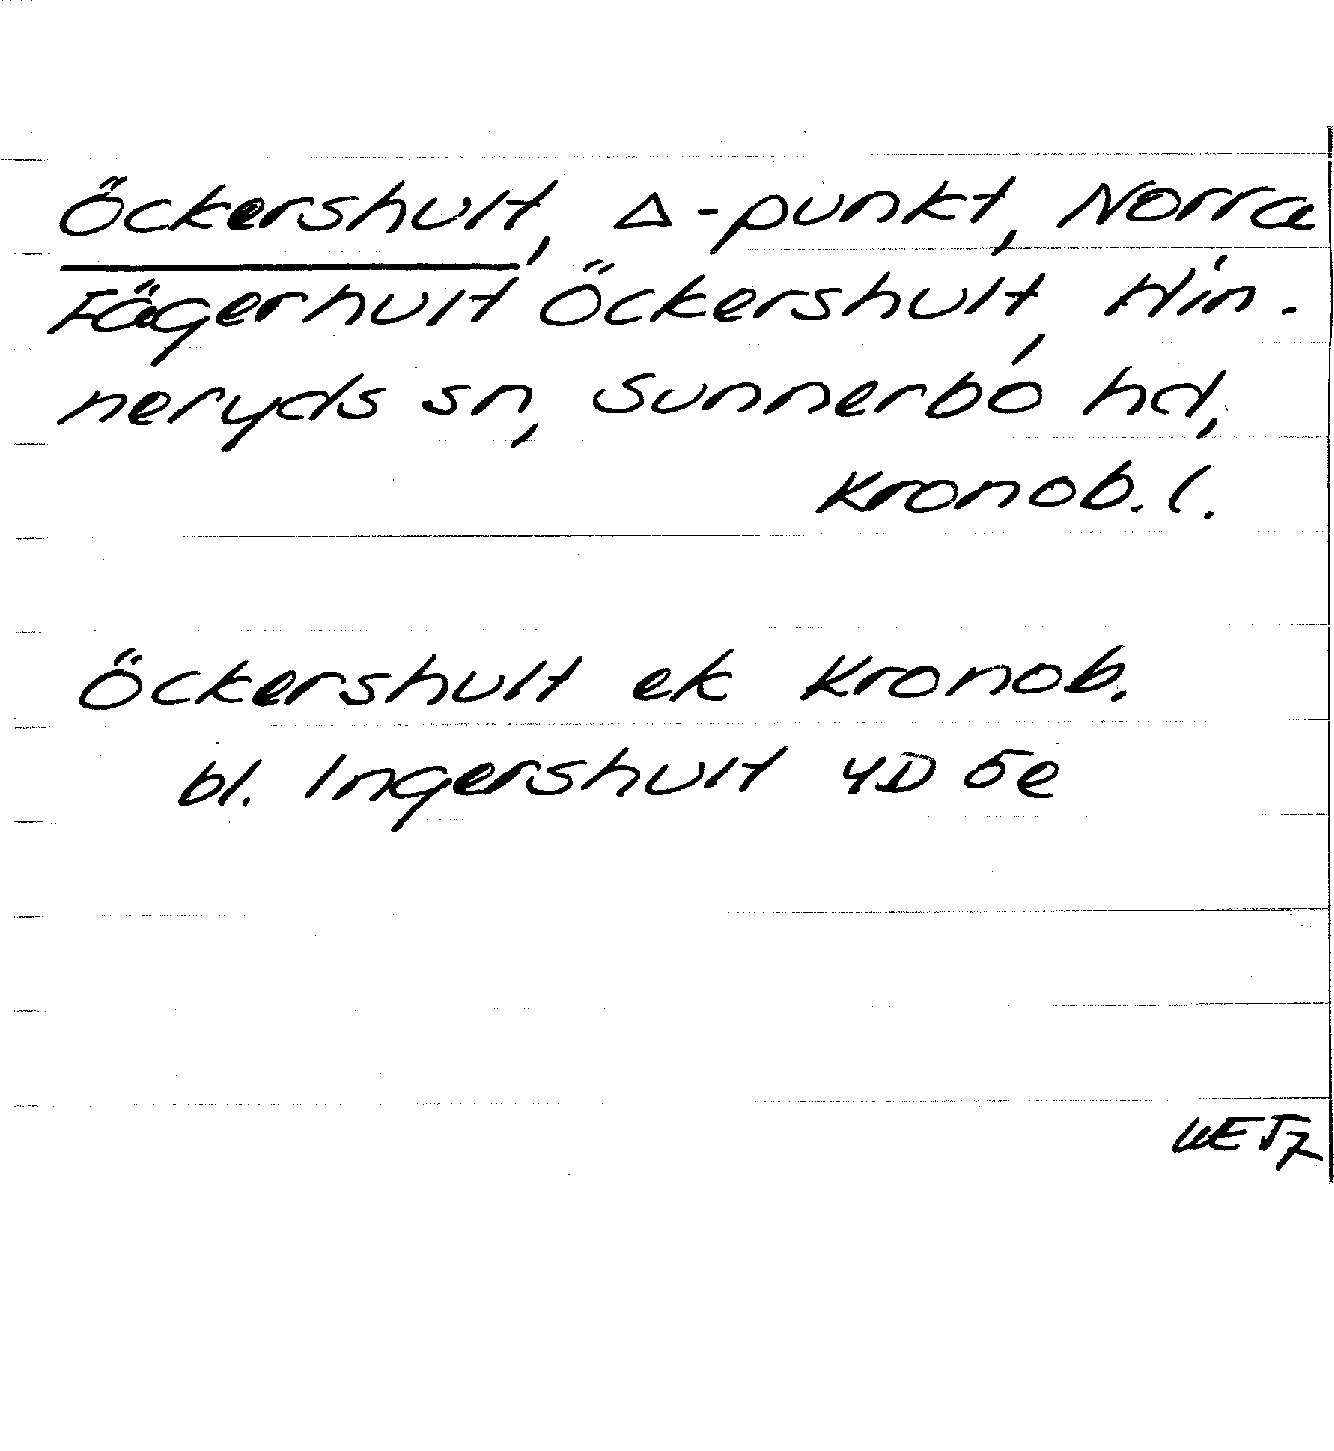 Öckershult, Δ-punkt, Norra
Fägerhult Öckershult, Hin-
neryds sn, Sunnerbo hd,
Kronob. l.
Öckershult ek Kronob.
bl. Ingershult 4D 5e